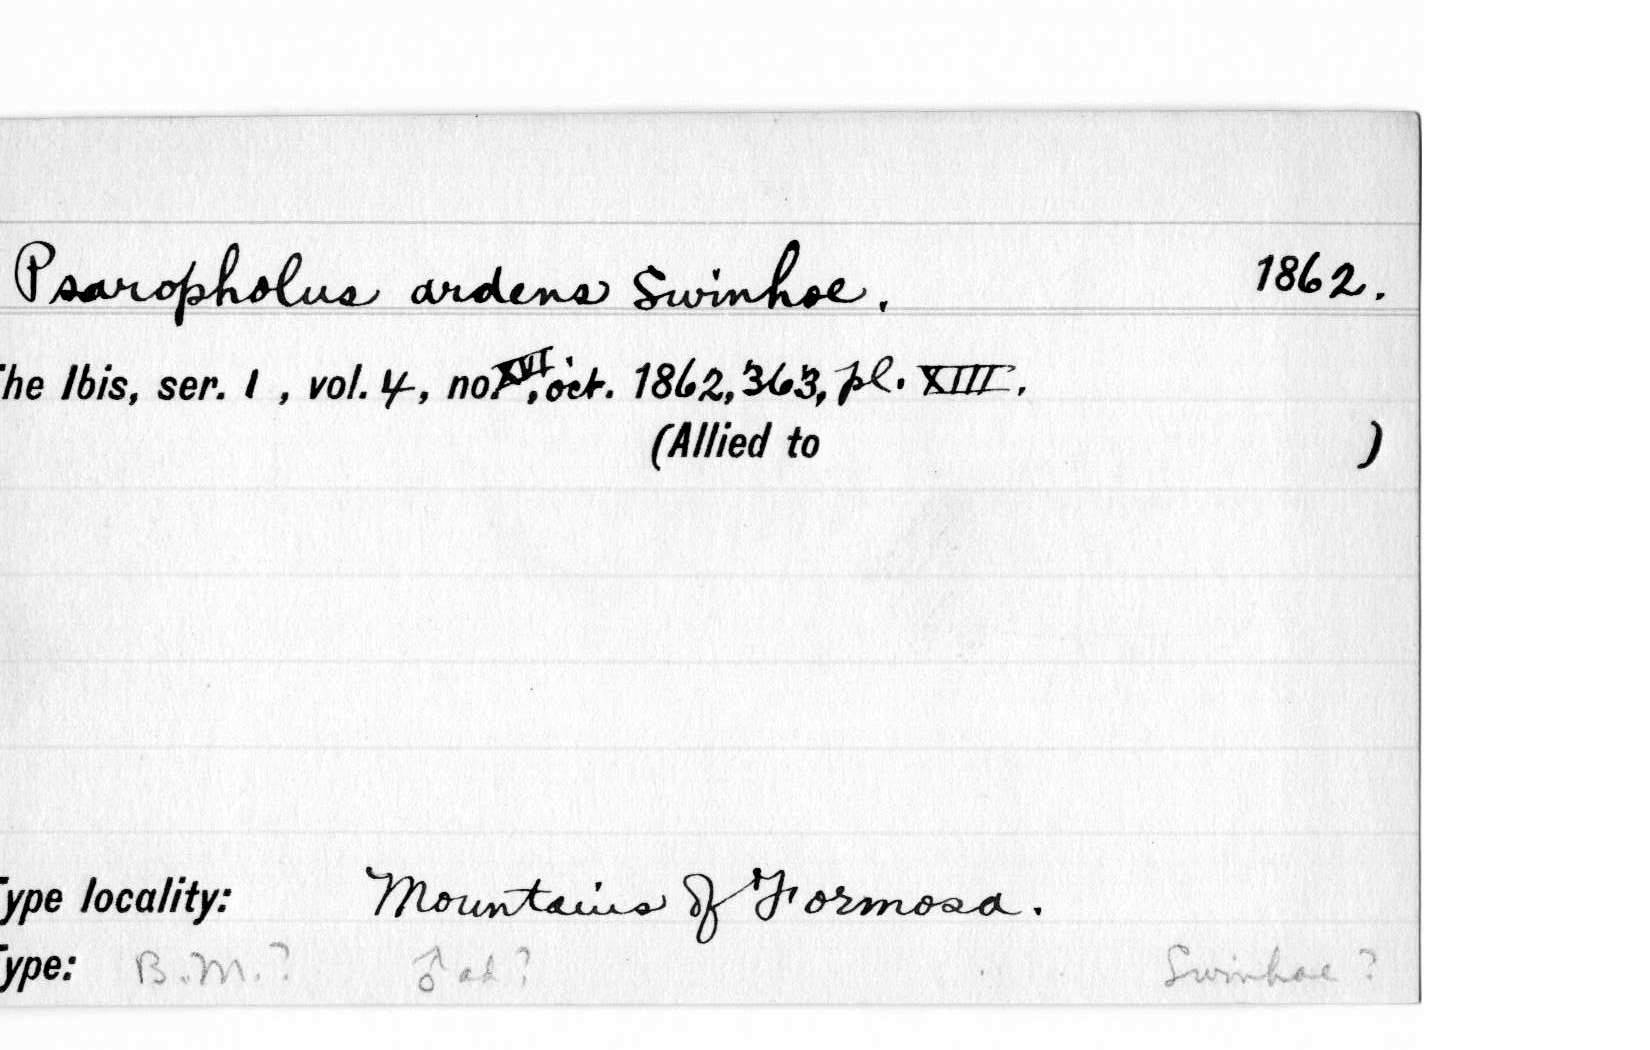 Psaropholus ardens Swinhoe. 1862.
The Ibis, ser. 1, vol. 4, no. XVI, oct. 1862, 363, pl. XIII.
(Allied to )
Type locality: Mountains of Formosa.
Type: B.M.? ♂ ad? Swinhoe?